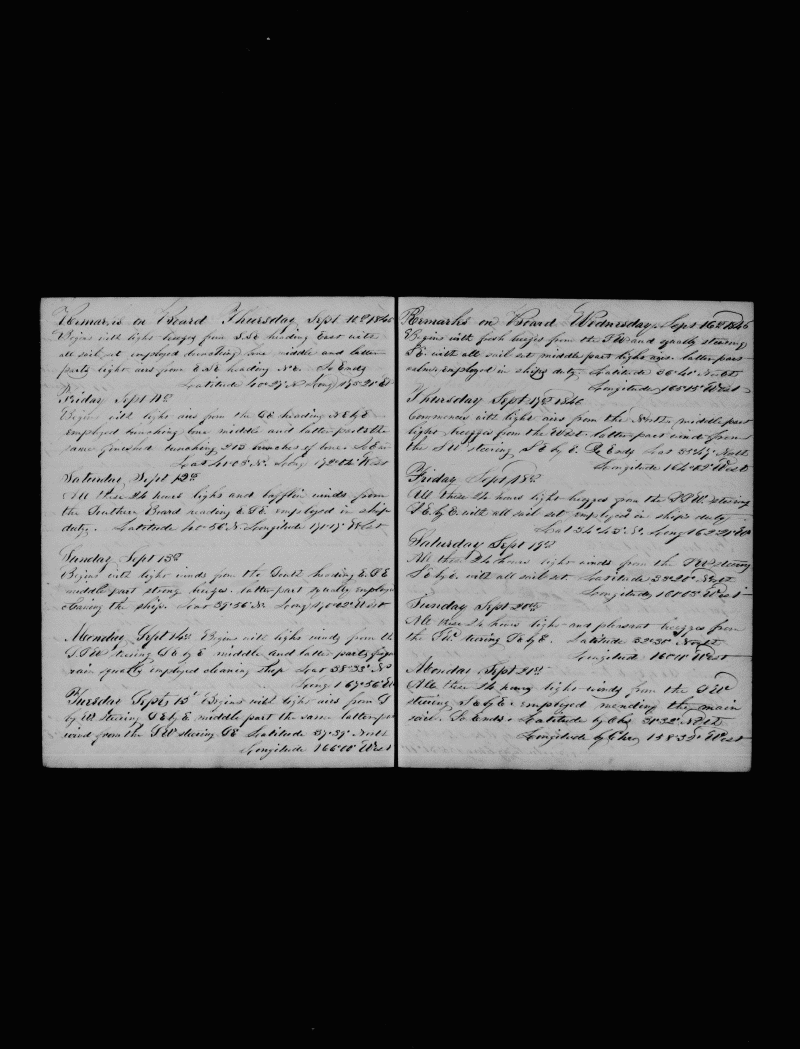 Remarks on Board Thursday Sept 10th 1846
Begins with light breezes from S.SE heading East with
all sail set employed bunching bone middle and latter
parts light airs from ESE heading NE. So Ends
Latitude 40°27' N Long 175°21' W
Friday Sept 11th
Begins with light airs from the SE heading NE by E
employed bunching bone middle and latter parts the
same finished bunching 213 bunches of bone. So Ends
Lat 41°05 N. Long 172°04' West
Saturday Sept 12th
All these 24 hours light and bafflin winds from
the Southern Board heading E.SE employed in ship
duty. Latitude 40°56 N. Longitude 171°17' West
Sunday Sept 13th
Begins with light winds from the South heading E.SE
middle part strong breezes. latter part squally employed
cleaning the ship. Lat 39°56 N. Long 170°02' West
Monday Sept 14th Begins with light winds from the
S.SW steering SE by E middle and latter parts from
rain squalls employed cleaning ship Lat 38°33' N
Long 167°56' W
Tuesday Sept 15th Begins with light airs from S
by W steering SE by E middle part the same latter part
wind from the SW steering SE Latitude 37°37' North
Longitude 166°00' West
Remarks on Board Wednesday Sept 16th 1846
Begins with fresh breezes from the and squally steering
SE. with all sail set middle part light airs. latter part
calm employed in ships duty Latitude 36°40' North
Longitude 165°15' West
Thursday Sept 17th 1846
Commences with light airs from the North. middle part
light breezes from the West. latter part wind from
the SW steering SE by E. So Ends Lat 35°47' North
Longitude 164°03' West
Friday Sept 18th
All these 24 hours light breezes from the S.SW steering
SE by E with all sail set employed in ships duty
Lat 34°43' N. Long 162°21' W
Saturday Sept 19th
All these 24 hours light winds from the SW steering
SE by E. with all sail set Latitude 33°21' North
Longitude 161°05' West
Sunday Sept 20th
All these 24 hours light and pleasant breezes from
the SW. steering SE by E. Latitude 32°31' North
Longitude 160°11' West
Monday Sept 21st
All these 24 hours light winds from the SW
steering SE by E. employed mending the main
sail. So Ends. Latitude by Obs 31°32' North
Longitude by Chro 158°39' West